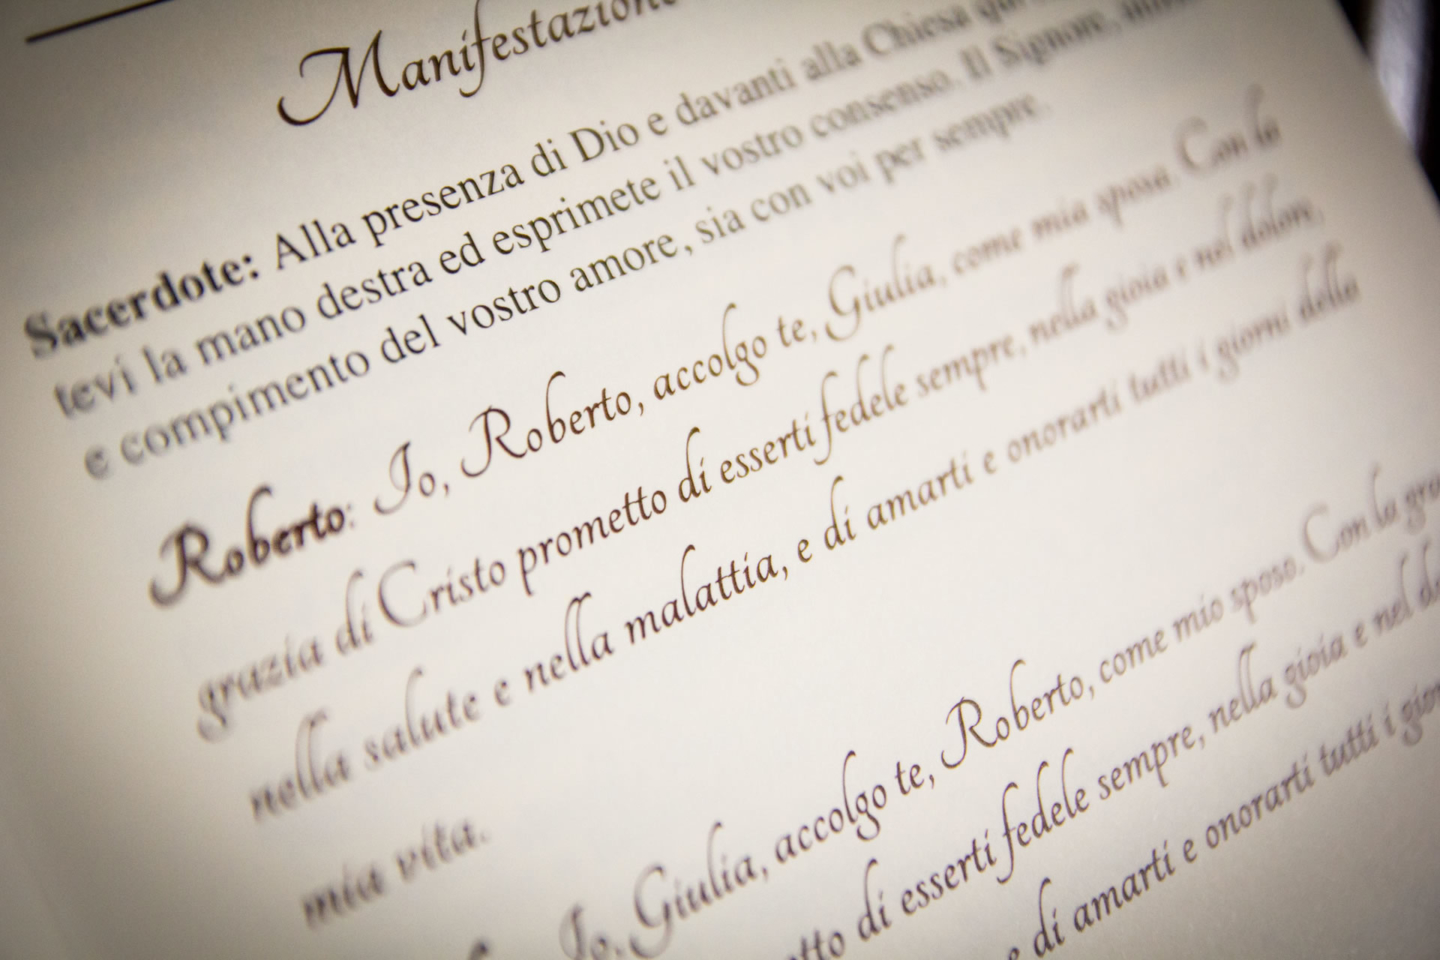 Manifestazione
Sacerdote: Alla presenza di Dio e davanti alla Chiesa qui
tevi la mano destra ed esprimete il vostro consenso. Il Signore,
e compimento del vostro amore, sia con voi per sempre.
Roberto: Io, Roberto, accolgo te, Giulia, come mia sposa. Con la
grazia di Cristo prometto di esserti fedele sempre, nella gioia e nel dolore,
nella salute e nella malattia, e di amarti e onorarti tutti i giorni della
mia vita.
Io, Giulia, accolgo te, Roberto, come mio sposo. Con la gra
tto di esserti fedele sempre, nella gioia e nel do
e di amarti e onorarti tutti i gior